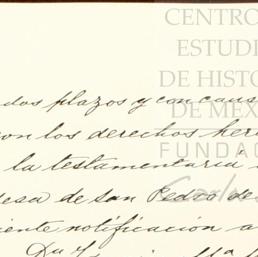 CENTRO
ESTUDI
DE HISTO
DE MÉX
FUNDAC
Carlos
dos plazos y con caus
on los derechos her
la testamentaria
esa de san Pedro de
iente notificacion a